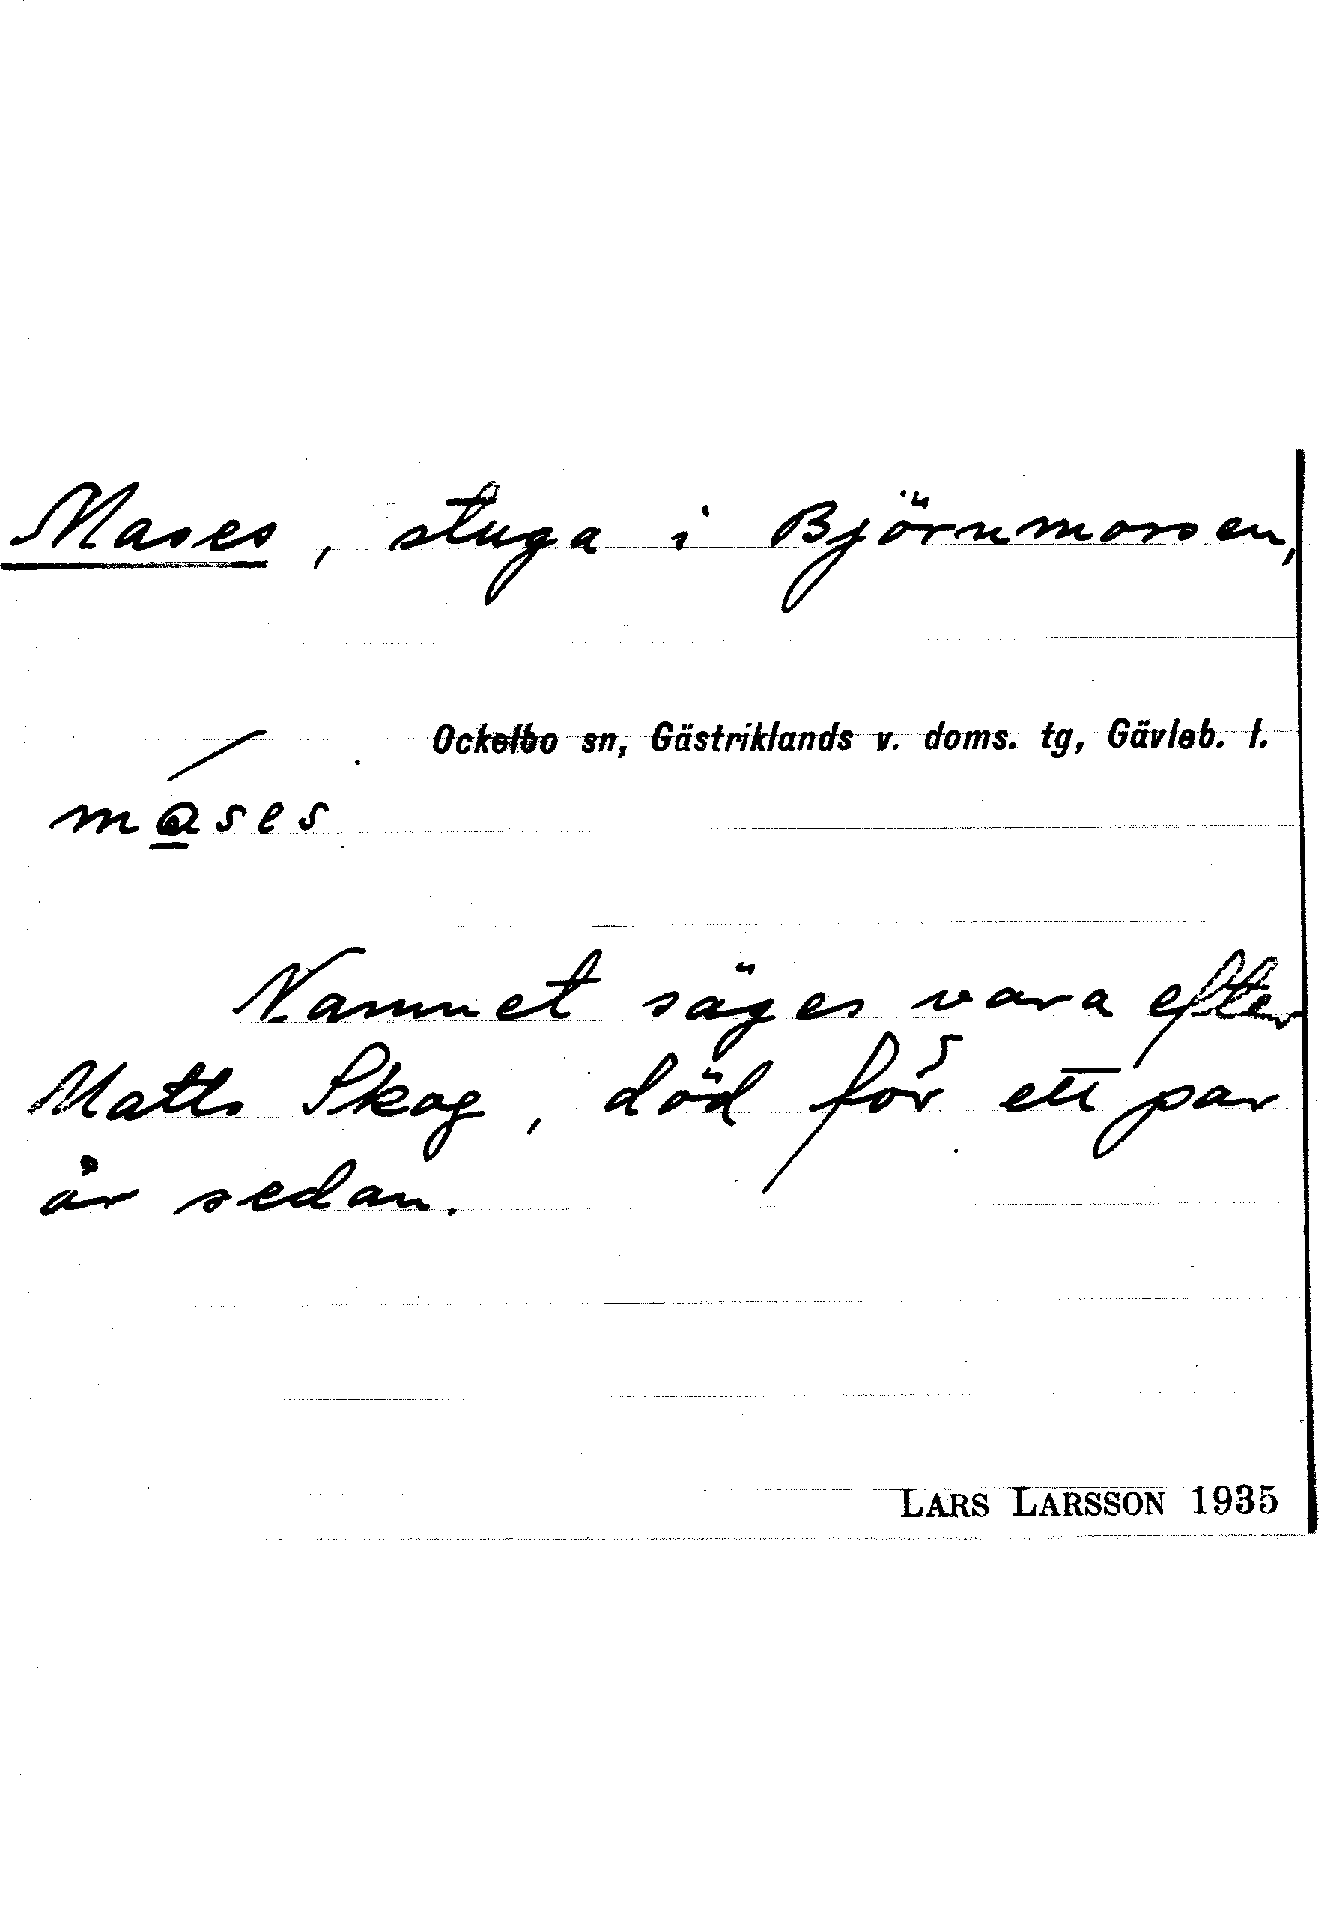 Mases, stuga i Björnmossen,
Ockelbo sn, Gästriklands v. doms. tg, Gävleb. l.
mases
Namnet säges vara efter
Matts Skog, död för ett par
år sedan.
LARS LARSSON 1935